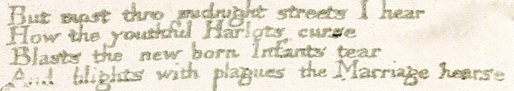 But most thro midnight streets I hear
How the youthful Harlots curse
Blasts the new born Infants tear
And blights with plagues the Marriage hearse